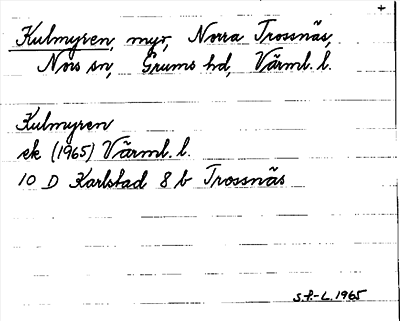 +
Kulmyren, myr, Norra Trossnäs,
Nors sn, Grums hd, Värml. l.
Kulmyren
ek (1965) Värml. l.
10 D Karlstad 8 b Trossnäs
S.F.-L. 1965